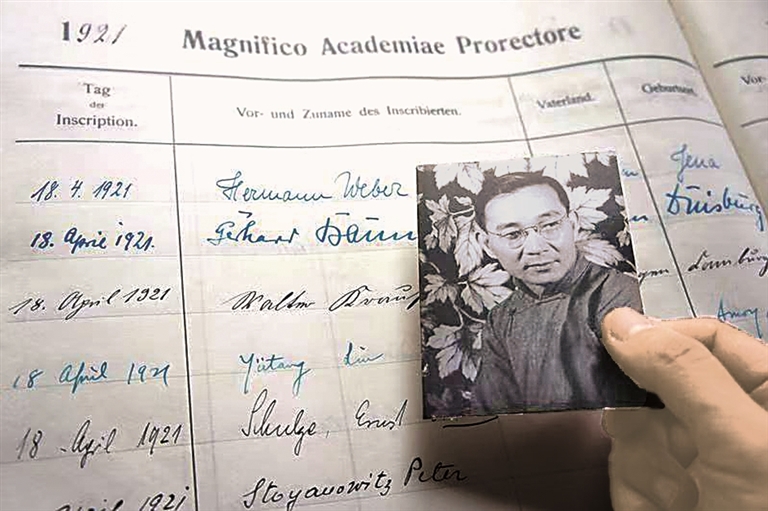 1921 Magnifico Academiae Prorectore
Tag der Inscription. Vor- und Zuname des Inscribierten. Vaterland. Geburtsort. Vor-
18. 4. 1921 Hermann Weber Jena
18. April 1921. Gerhard Duisburg
18. April 1921 Walter
18 April 1921 Yütang Lin Amoy
18. April 1921 Schulze, Ernst
April 1921 Stoyanowitz Peter